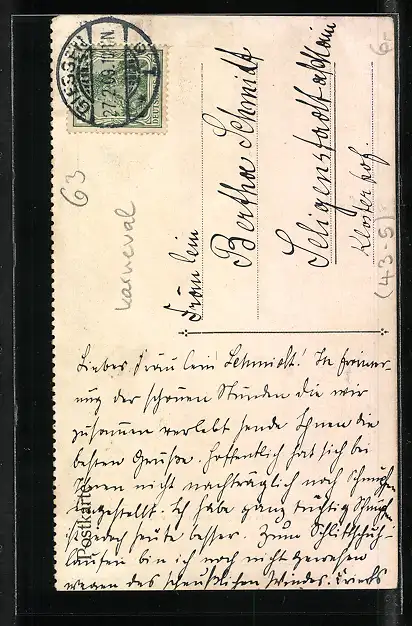 GIESSEN
27.2.09. 
63
Karneval
6-
(43-5)
Postkarte
Fräulein
Bertha Schmidt
Seligenstadt a/Main
Klosterhof.
Liebes Fräulein Schmidt! In Erinner-
ung der schönen Stunden die wir
zusammen verlebt sende Ihnen die
besten Grüße. Hoffentlich hat sich bei
Ihnen nicht nachträglich noch Schnupfen
eingestellt. Ich habe ganz tüchtig Schnupfen
ist jedoch heute besser. Zum Schlittschuh-
laufen bin ich noch nicht gewesen
wegen des scheußlichen Windes.